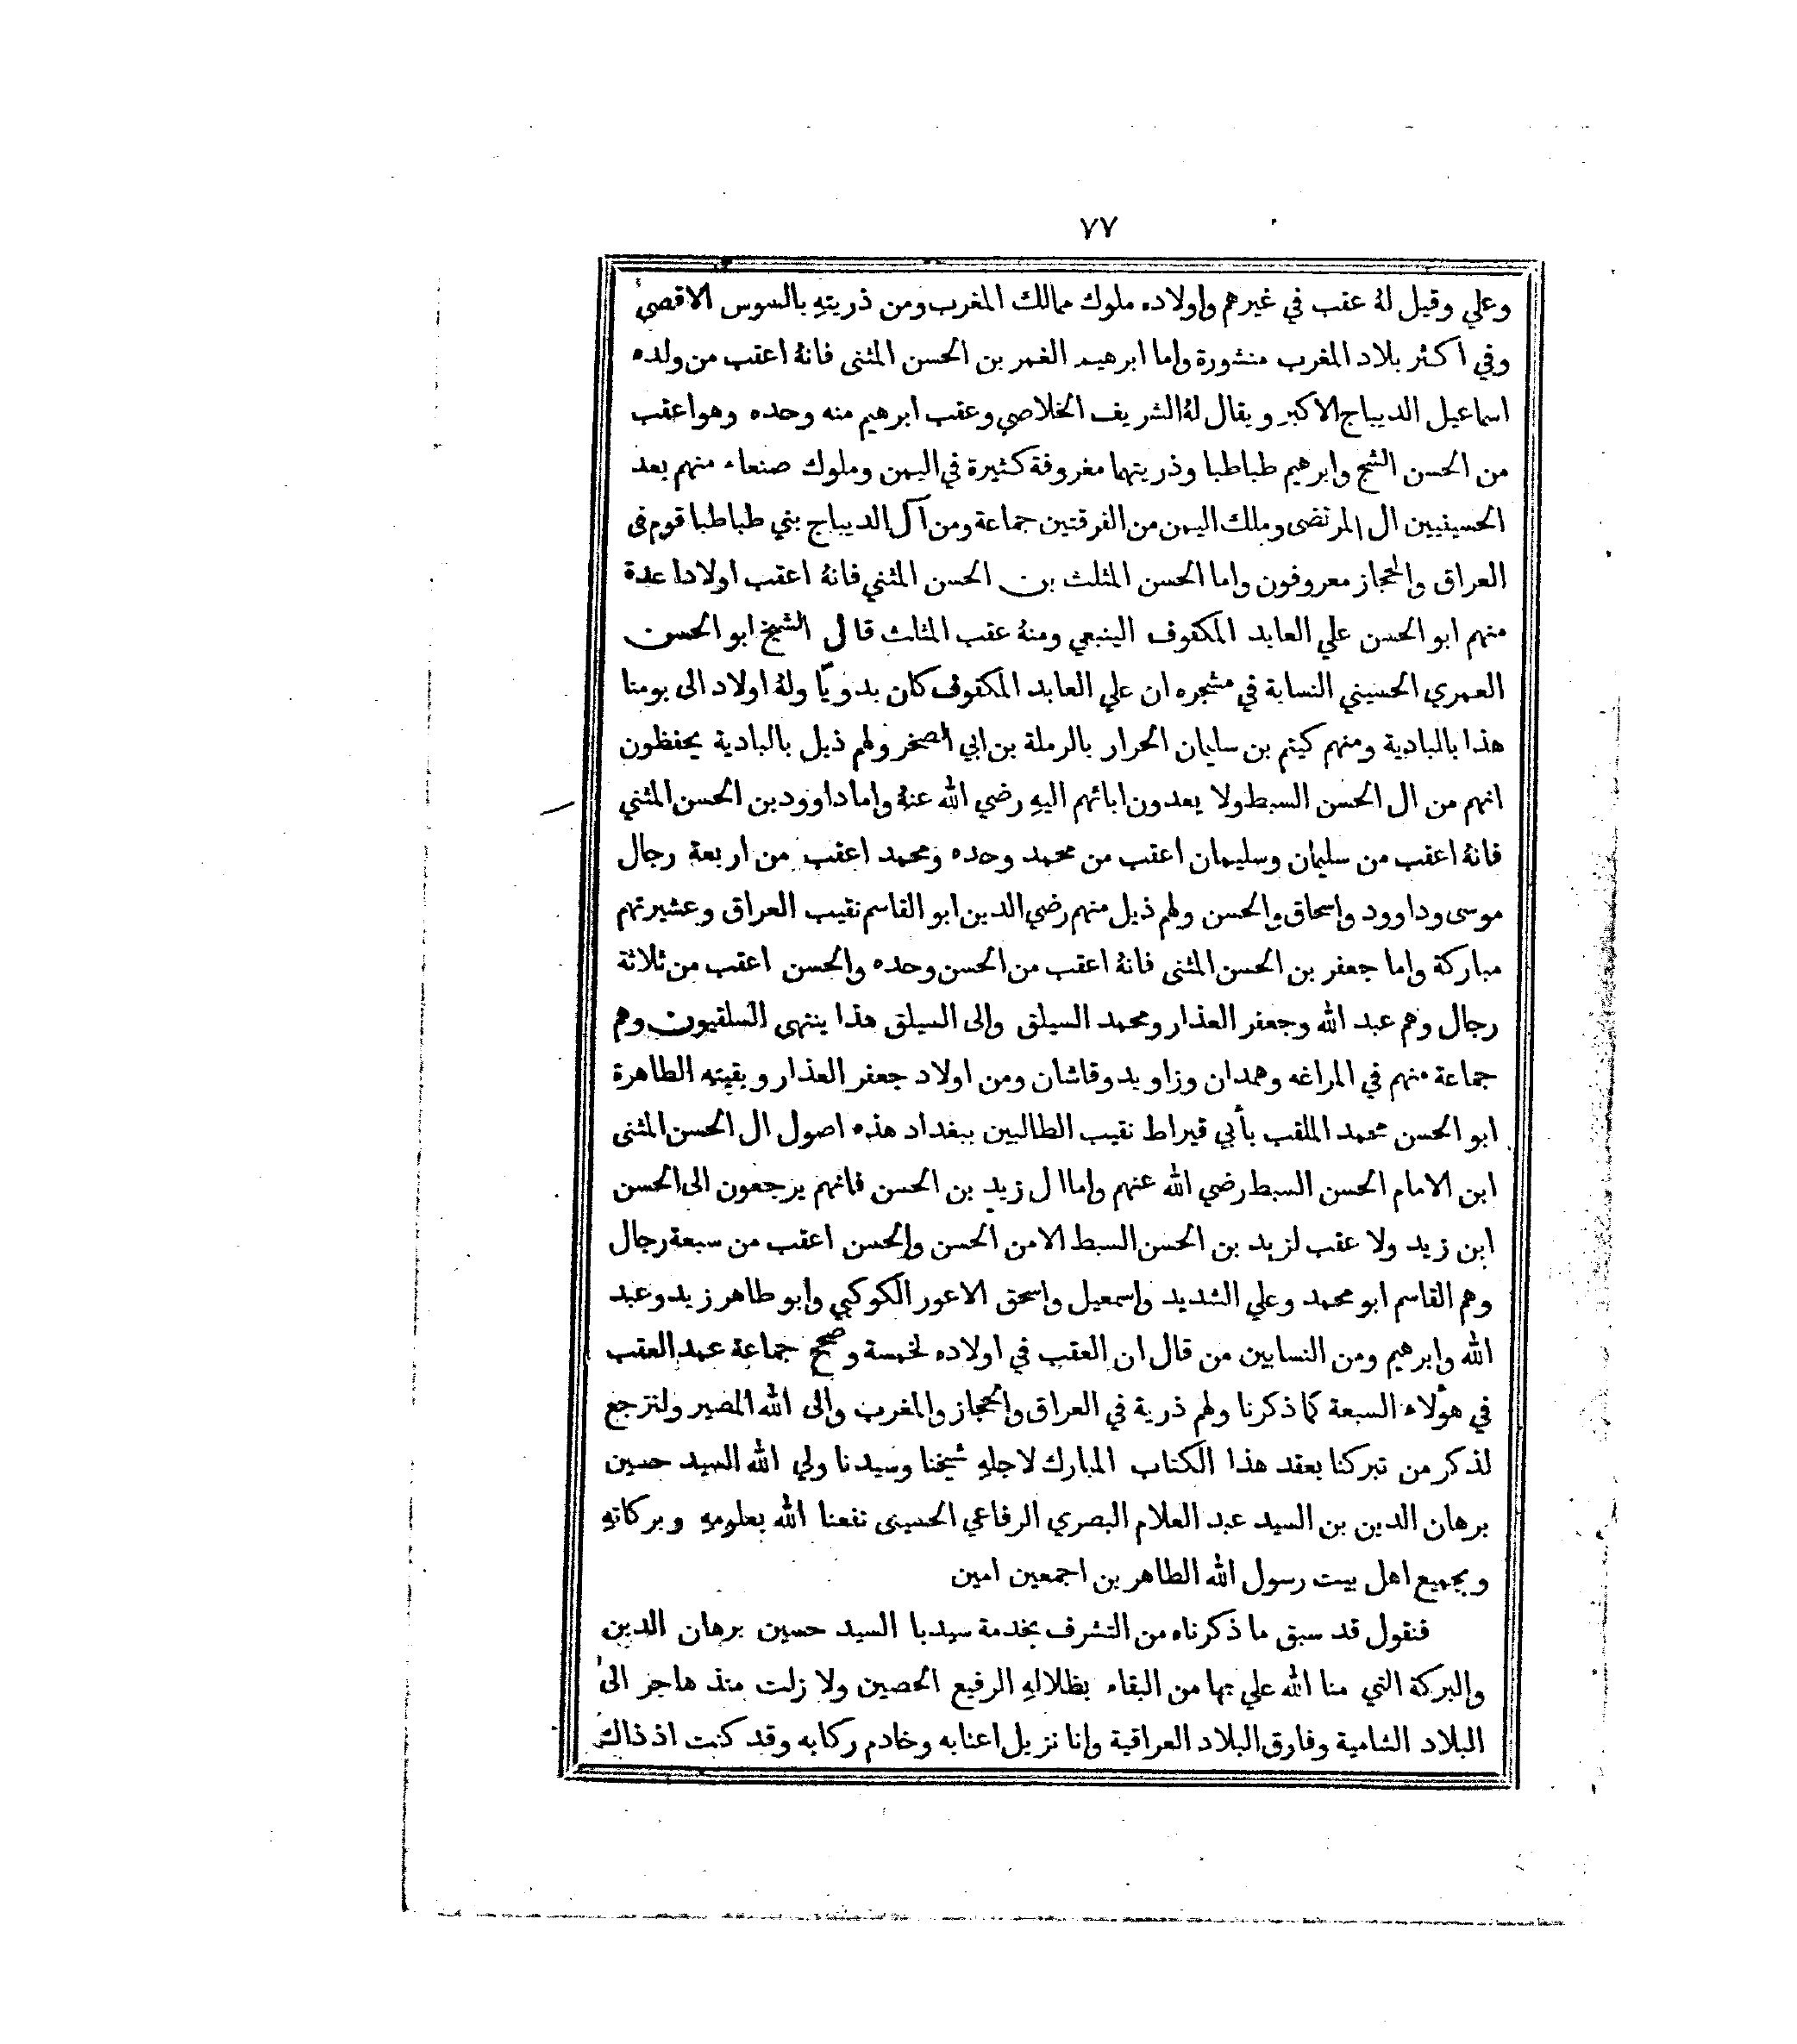 ٧٧
وعلي وقيل لهُ عقب في غيرهم واولاده ملوك ممالك المغرب ومن ذريتهِ بالسوس الاقصىٰ
وفي اكثر بلاد المغرب منشورة واما ابرهيم الغمر بن الحسن المثنى فانهُ اعقب من ولده
اسماعيل الديباج الاكبر ويقال لهُ الشريف الخلاصي وعقب ابرهيم منه وحده وهو اعقب
من الحسن الشج وابرهيم طباطبا وذريتهما مغروفة كثيرة في اليمن وملوك صنعاء منهم بعد
الحسينيين ال المرتضى وملك اليمن من الفرقتين جماعة ومن آل الديباج بني طباطبا قوم في
العراق والحجاز معروفون واما الحسن المثلث بن الحسن المثني فانهُ اعقب اولادا عدة
منهم ابو الحسن علي العابد المكفوف الينبعي ومنهُ عقب المثلث قال الشيخ ابو الحسن
العمري الحسيني النسابة في مشجره ان علي العابد المكفوف كان بدويًّا ولهُ اولاد الى يومنا
هذا بالبادية ومنهم كيتم بن سليمان الحرار بالرملة بن ابي الصخر ولهم ذيل بالبادية يحفظون
انهم من ال الحسن السبط ولا يعدون ابائهم اليهِ رضي الله عنهُ واما داوود بن الحسن المثني
فانهُ اعقب من سليمان وسليمان اعقب من محمد وحده ومحمد اعقب من اربعة رجال
موسى وداوود واسحاق والحسن ولهم ذيل منهم رضي الدين ابو القاسم نقيب العراق وعشيرتهم
مباركة واما جعفر بن الحسن المثنى فانهُ اعقب من الحسن وحده والحسن اعقب من ثلاثة
رجال وهم عبد الله وجعفر العذار ومحمد السيلق والى السيلق هذا ينتهى السلقيون وهم
جماعة منهم في المراغه وهمدان وزاويد وقاشان ومن اولاد جعفر العذار وبقيته الطاهرة
ابو الحسن محمد الملقب بأبي قيراط نقيب الطالبين ببغداد هذه اصول ال الحسن المثنى
ابن الامام الحسن السبط رضي الله عنهم واما ال زيد بن الحسن فانهم يرجعون الى الحسن
ابن زيد ولا عقب لزيد بن الحسن السبط الا من الحسن والحسن اعقب من سبعة رجال
وهم القاسم ابو محمد وعلي الشديد واسمعيل واسحق الاعور الكوكبي وابو طاهر زيد وعبد
الله وابرهيم ومن النسابين من قال ان العقب في اولاده لخمسة وصحح جماعة عمد العقب
في هؤلاء السبعة كما ذكرنا ولهم ذرية في العراق والحجاز والمغرب والى الله المصير ولنرجع
لذكر من تبركنا بعقد هذا الكتاب المبارك لاجلهِ شيخنا وسيدنا ولي الله السيد حسين
برهان الدين بن السيد عبد العلام البصري الرفاعي الحسيني نفعنا الله بعلومهِ وبركاتهِ
وبجميع اهل بيت رسول الله الطاهرين اجمعين امين
فنقول قد سبق ما ذكرناه من التشرف بخدمة سيدنا السيد حسين برهان الدين
والبركة التي منا الله علي بها من البقاء بظلالهِ الرفيع الحصين ولا زلت منذ هاجر الى
البلاد الشامية وفارق البلاد العراقية وانا نزيل اعتابه وخادم ركابه وقد كنت اذ ذاك